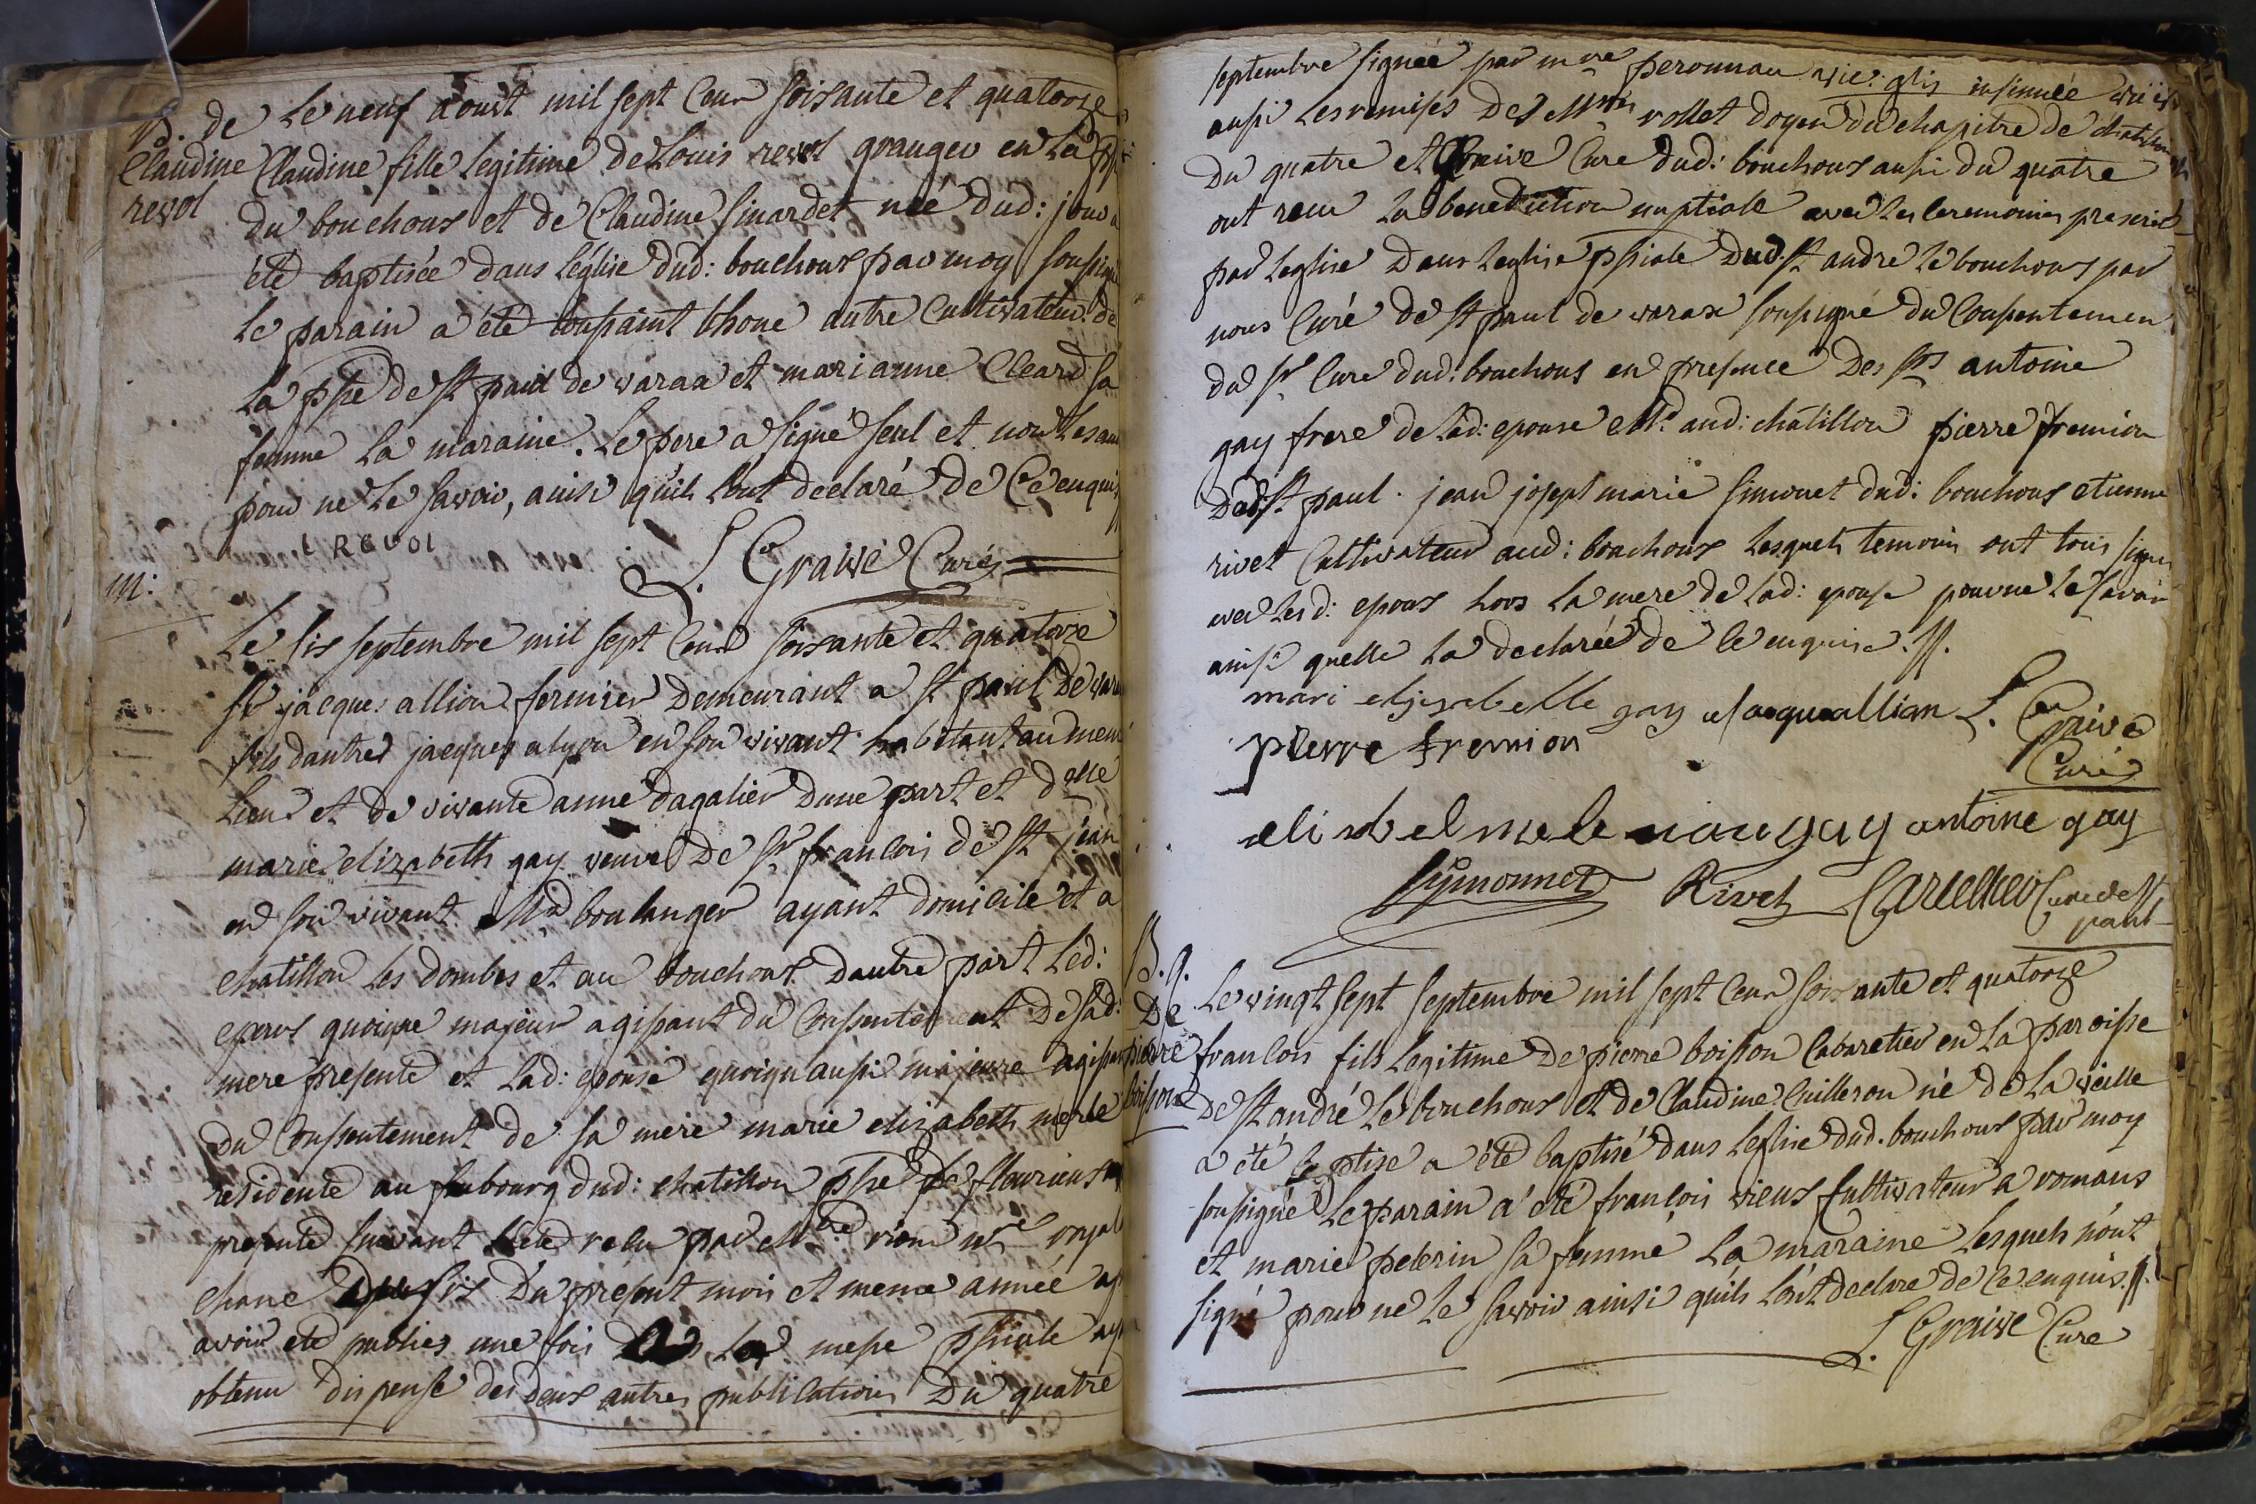 B. de
Claudine
revol
Le neuf aoust mil sept Cent soixante et quatorze
Claudine fille legitime de Louis revol granger en la psse
du bouchoux et de Claudine sinardet née dud: jour a
été baptisée dans léglise dud: bouchoux par moy soussigné
Le parain a été toussaint thone autre Cultivateur de
La psse de st paul de varax et marianne Cleard sa
femme La maraine. Le pere a signé seul et non les au
pour ne Le savoir, ainsi quils l'ont declaré de Ce enquis
L REVOL
L. Graive Curé
m:
Le six septembre mil sept Cent soixante et quatorze
sr jacques allion fermier demeurant a st paul de vara
fils dautre jacques alyon en son vivant habitant au meme
Lieu et de vivante anne dagalier dune part et delle
marie elizabeth gay veuve de sr francois de st jean
en son vivant Md boulanger ayant domicile et a
chatillon les dombes et au bouchoux dautre part Led:
epoux quoique majeur agissant du Consentement de sad:
mere presente et Lad: epouse quoiqu aussi majeure agissan
du Consentement de sa mere marie elizabeth merle
residente au faubourg dud: chatillon psse de fleurieux
presente suivant lacte recu par Mtre nre royal
six du present mois et meme année ap
avoir été publies une fois messe pssiale ay
obtenu dispense des deux autres publications du quatre
septembre signée par mre peronnau vic: gls insinuée
aussi Les remises de Mrs rollet doyen du chapitre de chatillon
du quatre et Graive Curé dud: bouchoux aussi du quatre
ont recu La benediction nuptiale avec Les Ceremonies prescrit
par Leglise dans Leglise pssiale dud. st andre Le bouchoux par
nous Curé de st paul de varax soussigné du Consentemen
du sr Curé dud: bouchoux en presence des srs antoine
gay frere de Lad: epouse Md. aud: chatillon pierre fremion
dud. st paul. jean joseph marie simonet dud: bouchoux etienne
rivet Cultivateur aud: bouchoux Lesquels temoins ont tous signé
avec Lesd: epoux hors La mere de Lad: epouse pour ne Le savoir
ainsi quelle La declarée de Ce enquise.
mari elisabelle gay Jacque allian L. Graive
pierre fremion Curé
gay antoine gay
Symonnet Rivet Curé de st
paul
B. f.
de
pierre
boisson
Le vingt sept septembre mil sept Cent soixante et quatorze
francois fils Legitime de pierre boisson Cabaretier en La paroisse
de st andré Le bouchoux et de Claudine Cuilleron né de La veille
a été baptisé a été baptisé dans Leglise dud. bouchoux par moy
soussigné Le parain a été françois vieux Cultivateur a romans
et marie pelerin sa femme La maraine Lesquels n'ont
signé pour ne Le savoir ainsi quils L'ont declaré de Ce enquis.
L. Graive Curé